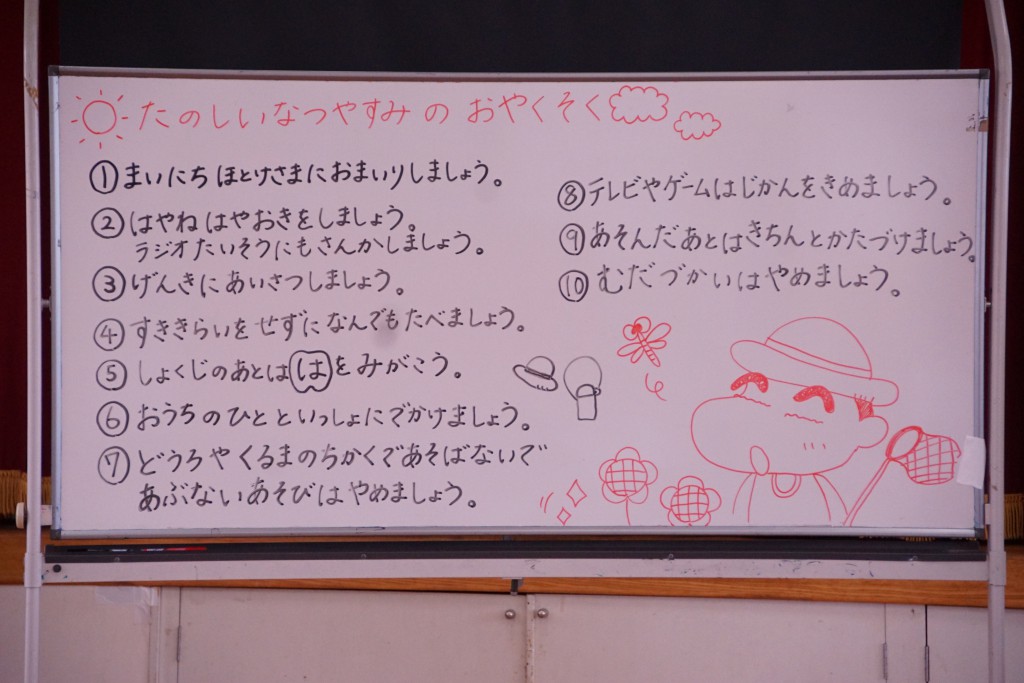 たのしいなつやすみの おやくそく
① まいにち ほとけさまにおまいりしましょう。
② はやね はやおきをしましょう。
ラジオたいそうにもさんかしましょう。
③ げんきにあいさつしましょう。
④ すききらいをせずになんでもたべましょう。
⑤ しょくじのあとは はをみがこう。
⑥ おうちのひとといっしょにでかけましょう。
⑦ どうろやくるまのちかくであそばないで
あぶないあそびはやめましょう。
⑧ テレビやゲームはじかんをきめましょう。
⑨ あそんだあとはきちんとかたづけましょう。
⑩ むだづかいはやめましょう。